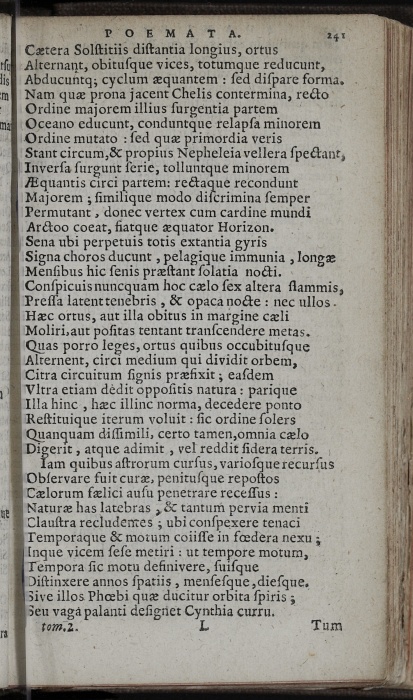 POEMATA. 241
Cætera Solſtitiis diſtantia longius, ortus
Alternant, obituſque vices, totumque reducunt,
Abducuntq; cyclum æquantem : ſed diſpare forma.
Nam quæ prona jacent Chelis contermina, recto
Ordine majorem illius ſurgentia partem
Oceano educunt, conduntque relapſa minorem
Ordine mutato : ſed quæ primordia veris
Stant circum, & propius Nepheleia vellera ſpectant,
Inverſa ſurgunt ſerie, tolluntque minorem
Æquantis circi partem: rectaque recondunt
Majorem ; ſimilique modo diſcrimina ſemper
Permutant , donec vertex cum cardine mundi
Arctoo coeat, fiatque æquator Horizon.
Sena ubi perpetuis totis extantia gyris
Signa choros ducunt , pelagique immunia , longæ
Menſibus hic ſenis præſtant ſolatia nocti.
Conſpicuis nuncquam hoc cælo ſex altera flammis,
Preſſa latent tenebris , & opaca nocte : nec ullos
Hæc ortus, aut illa obitus in margine cæli
Moliri, aut poſitas tentant tranſcendere metas.
Quas porro leges, ortus quibus occubituſque
Alternent, circi medium qui dividit orbem,
Citra circuitum ſignis præfixit ; eaſdem
Vltra etiam dedit oppoſitis natura : parique
Illa hinc , hæc illinc norma, decedere ponto
Reſtituique iterum voluit : ſic ordine ſolers
Quanquam diſſimili, certo tamen, omnia cælo
Digerit , atque adimit , vel reddit ſidera terris.
Iam quibus aſtrorum curſus, varioſque recurſus
Obſervare fuit curæ, penituſque repoſtos
Cælorum fælici auſu penetrare receſſus :
Naturæ has latebras , & tantum pervia menti
Clauſtra recludentes ; ubi conſpexere tenaci
Temporaque & motum coiiſſe in fœdera nexu ;
Inque vicem ſeſe metiri : ut tempore motum,
Tempora ſic motu definivere, ſuiſque
Diſtinxere annos ſpatiis , menſeſque, dieſque.
Sive illos Phœbi quæ ducitur orbita ſpiris ;
Seu vaga palanti deſignet Cynthia curru.
tom.2. L Tum